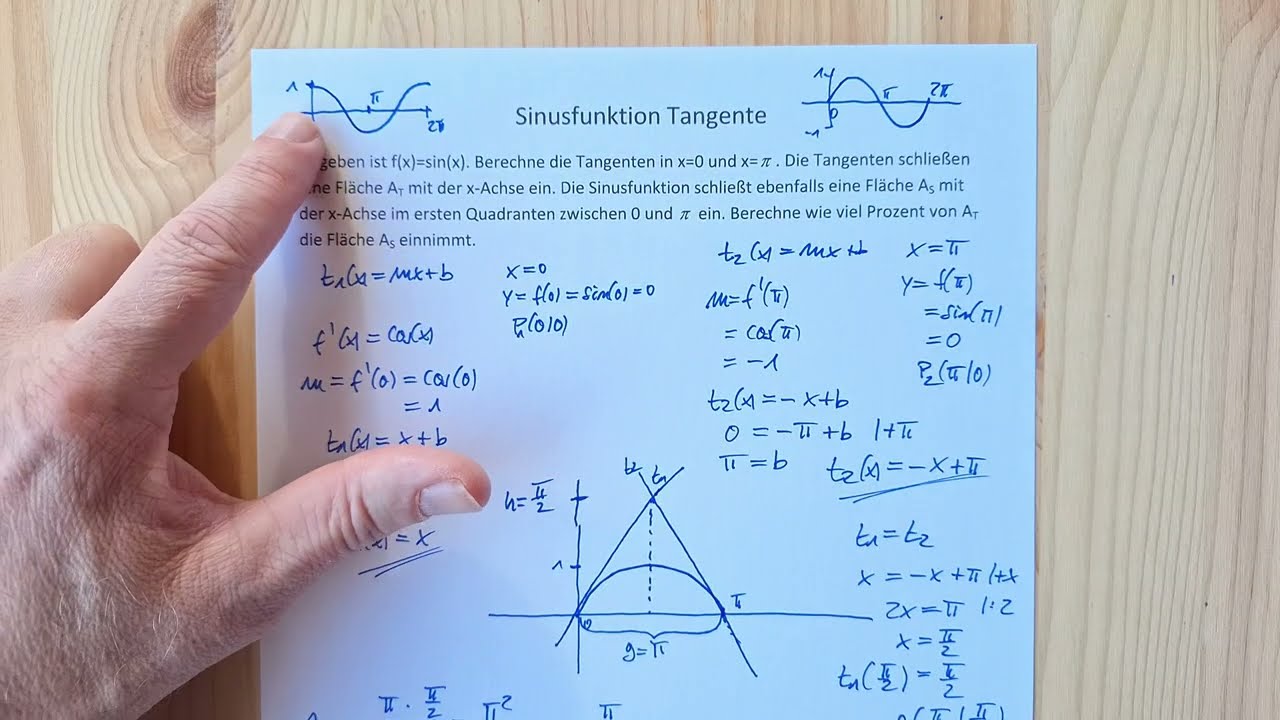 1
π
2π
Sinusfunktion Tangente
1
0
π
2π
-1
geben ist f(x)=sin(x). Berechne die Tangenten in x=0 und x=π. Die Tangenten schließen
ne Fläche A_T mit der x-Achse ein. Die Sinusfunktion schließt ebenfalls eine Fläche A_S mit
der x-Achse im ersten Quadranten zwischen 0 und π ein. Berechne wie viel Prozent von A_T
die Fläche A_S einnimmt.
t₁(x)=mx+b
f'(x)=cos(x)
m=f'(0)=cos(0)
=1
t₁(x)=x+b
=x
x=0
y=f(0)=sin(0)=0
P₁(0|0)
t₂(x)=mx+b
m=f'(π)
=cos(π)
=-1
t₂(x)=-x+b
0=-π+b |+π
π=b
x=π
y=f(π)
=sin(π)
=0
P₂(π|0)
t₂(x)=-x+π
t₂
t₁
h=π/2
1
0
π
g=π
t₁=t₂
x=-x+π |+x
2x=π |:2
x=π/2
t₁(π/2)=π/2
π·π/2
π²
π